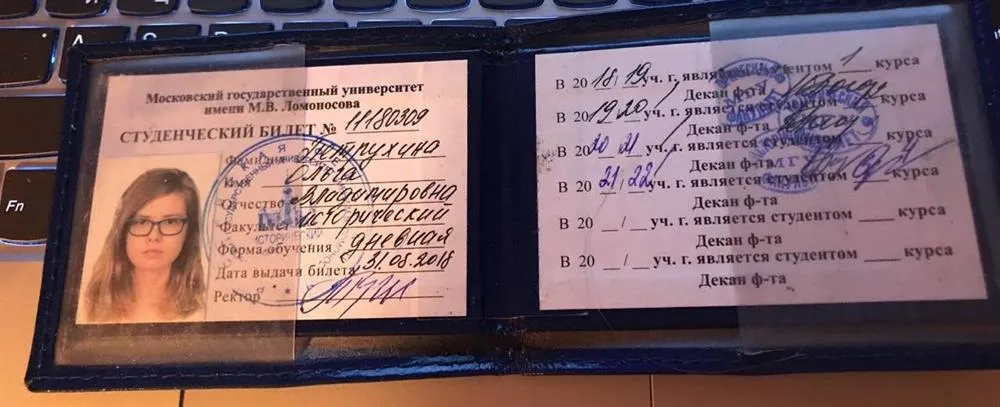 Московский государственный университет
имени М.В. Ломоносова
СТУДЕНЧЕСКИЙ БИЛЕТ № 11180309
Фамилия Петрухина
Имя Ольга
Отчество Владимировна
Факультет исторический
Форма обучения дневная
Дата выдачи билета 31.08.2018
Ректор
ИСТОРИЧЕСКИЙ
В 2018/19 уч. г. является студентом 1 курса
Декан ф-та
В 2019/20 уч. г. является студентом курса
Декан ф-та
В 2020/21 уч. г. является студентом курса
Декан ф-та
В 2021/22 уч. г. является студентом 4 курса
Декан ф-та
В 20 __/__ уч. г. является студентом ____ курса
Декан ф-та
В 20 __/__ уч. г. является студентом ____ курса
Декан ф-та
Fn
A
S